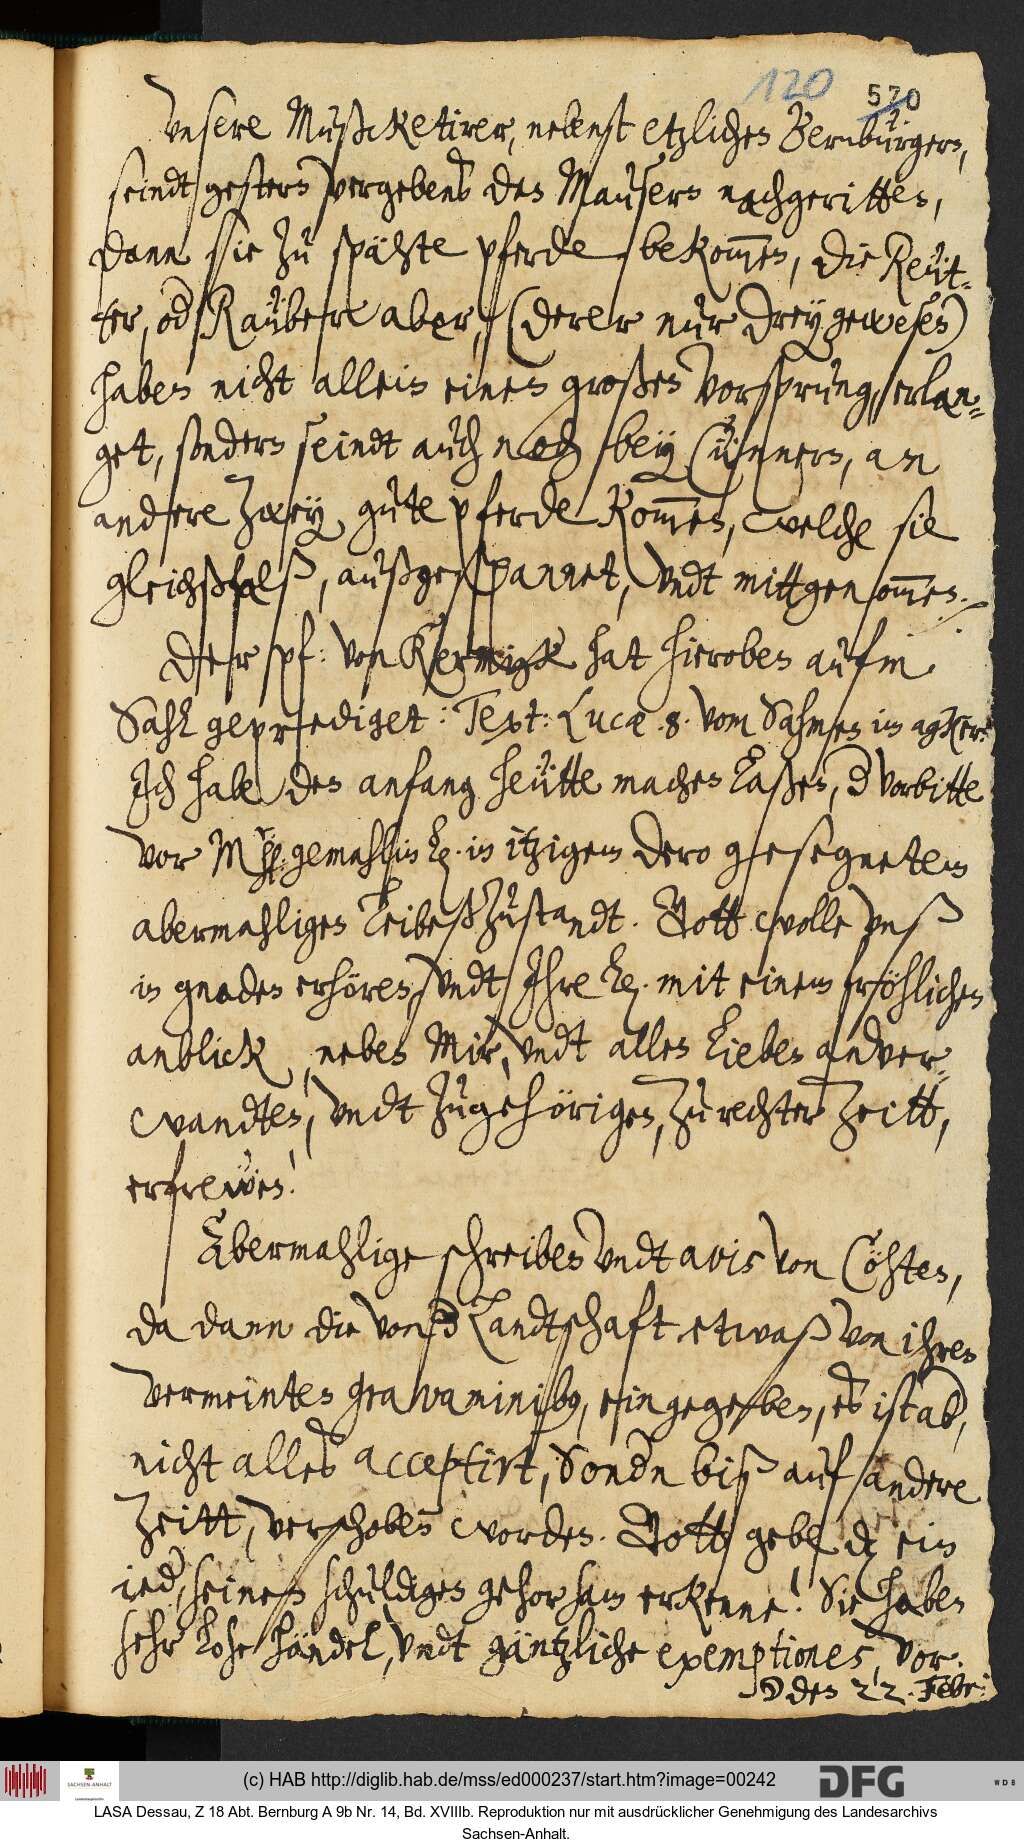 120
570
Unsere Mußcketirer, nebenst etzlichen Bernburgern,
seindt gestern vergebens den Mausern nachgeritten,
dann sie zu spähte pferde bekom̅en, die Reüt-
ter, od Raüber aber, (derer nur drey gewesen)
haben nicht allein einen großen vorsprung, erlan-
get, sondern seindt auch noch bey Cünnern, an
andere zwey gute pferde kom̅en, welche sie
gleichßfalß, außgespannet, undt mittgenom̅en.
Der pf: von hat hieroben aufm
Sahl geprediget: Text: Lucæ .8. vom Sahmen im agker.
Ich habe den anfang heütte machen laßen, d vorbitte
vor M gemahlin in itzigem dero gesegnetem
abermahligen Leibeßzustandt. Gott wolle unß
in gnaden erhören, undt Ihre mit einem fröhlichen
anblick, neben Mir, undt allen lieben anver-
wandten, undt zugehörigen, zu rechter zeitt,
erfrewen!
Abermahlige schreiben undt avis von Cöhten,
da dann die von d Landtschaft etwaß von ihren
vermeinten gravaminib9, eingegeben, es ist ab,
nicht alles acceptirt, Sondn biß auf andere
Zeitt, verschoben worden. Gott gebe dz ein
ied, seinen schuldigen gehorsam erkenne! Sie haben
sehr hohe händel, undt gäntzliche exemptiones, vor.
den 22. Febr:
(c) HAB http://diglib.hab.de/mss/ed000237/start.htm?image=00242
SACHSEN-ANHALT
DFG
WDB
LASA Dessau, Z 18 Abt. Bernburg A 9b Nr. 14, Bd. XVIIIb. Reproduktion nur mit ausdrücklicher Genehmigung des Landesarchivs
Sachsen-Anhalt.